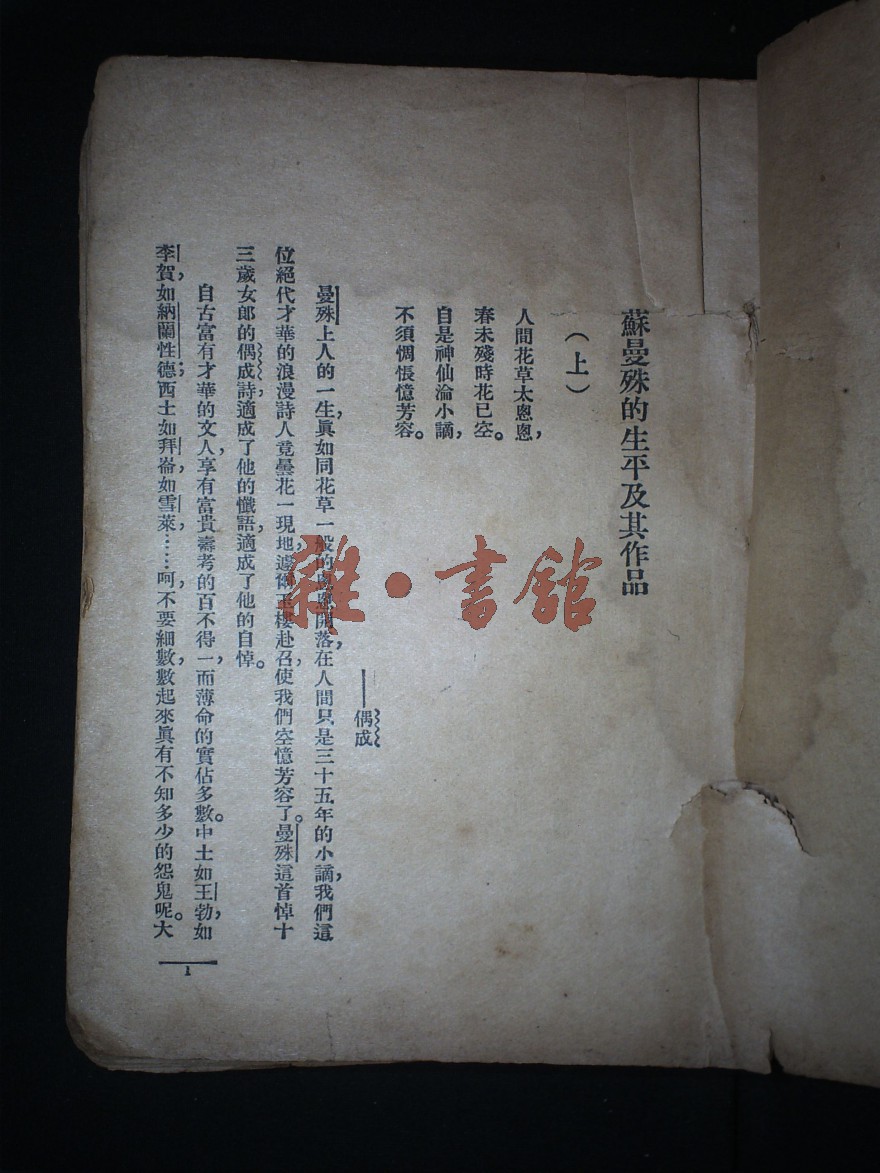 蘇曼殊的生平及其作品
(上)
人間花草太悤悤,
春未殘時花已空。
自是神仙淪小謫,
不須惆悵憶芳容。
——偶成
曼殊上人的一生,眞如同花草一般的悤悤開落在人間,只是三十五年的小謫,我們這
位絕代才華的浪漫詩人竟曇花一現地,遽爾玉樓赴召,使我們空憶芳容了。曼殊這首悼十
三歲女郎的偶成詩,適成了他的懺語,適成了他的自悼。
自古富有才華的文人,享有富貴壽考的百不得一,而薄命的實佔多數。中土如王勃,如
李賀,如納蘭性德;西土如拜崙,如雪萊……呵,不要細數,數起來眞有不知多少的怨鬼呢。大
1
雜·書館